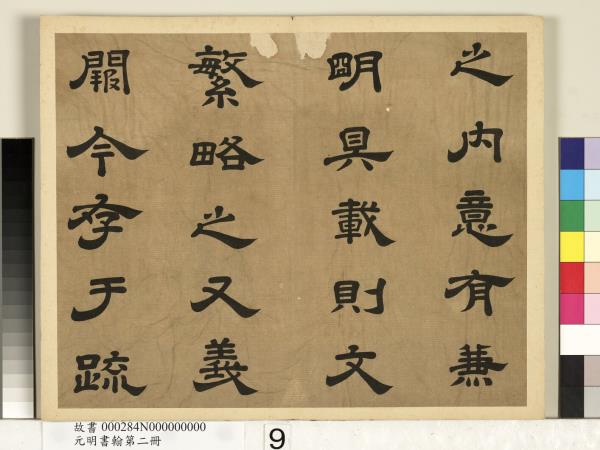 之內意有兼
明具載則文
繁略之又義
闕今存于疏
故書 000284N000000000
元明書翰第二冊
9